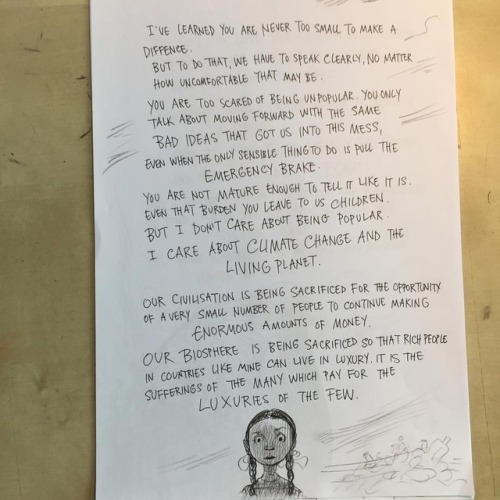 I'VE LEARNED YOU ARE NEVER TOO SMALL TO MAKE A
DIFFENCE.
BUT TO DO THAT, WE HAVE TO SPEAK CLEARLY, NO MATTER
HOW UNCOMFORTABLE THAT MAY BE.
YOU ARE TOO SCARED OF BEING UNPOPULAR. YOU ONLY
TALK ABOUT MOVING FORWARD WITH THE SAME
BAD IDEAS THAT GOT US INTO THIS MESS,
EVEN WHEN THE ONLY SENSIBLE THING TO DO IS PULL THE
EMERGENCY BRAKE.
YOU ARE NOT MATURE ENOUGH TO TELL IT LIKE IT IS.
EVEN THAT BURDEN YOU LEAVE TO US CHILDREN.
BUT I DON'T CARE ABOUT BEING POPULAR.
I CARE ABOUT CLIMATE CHANGE AND THE
LIVING PLANET.
OUR CIVILISATION IS BEING SACRIFICED FOR THE OPPORTUNITY
OF A VERY SMALL NUMBER OF PEOPLE TO CONTINUE MAKING
ENORMOUS AMOUNTS OF MONEY.
OUR BIOSPHERE IS BEING SACRIFICED SO THAT RICH PEOPLE
IN COUNTRIES LIKE MINE CAN LIVE IN LUXURY. IT IS THE
SUFFERINGS OF THE MANY WHICH PAY FOR THE
LUXURIES OF THE FEW.